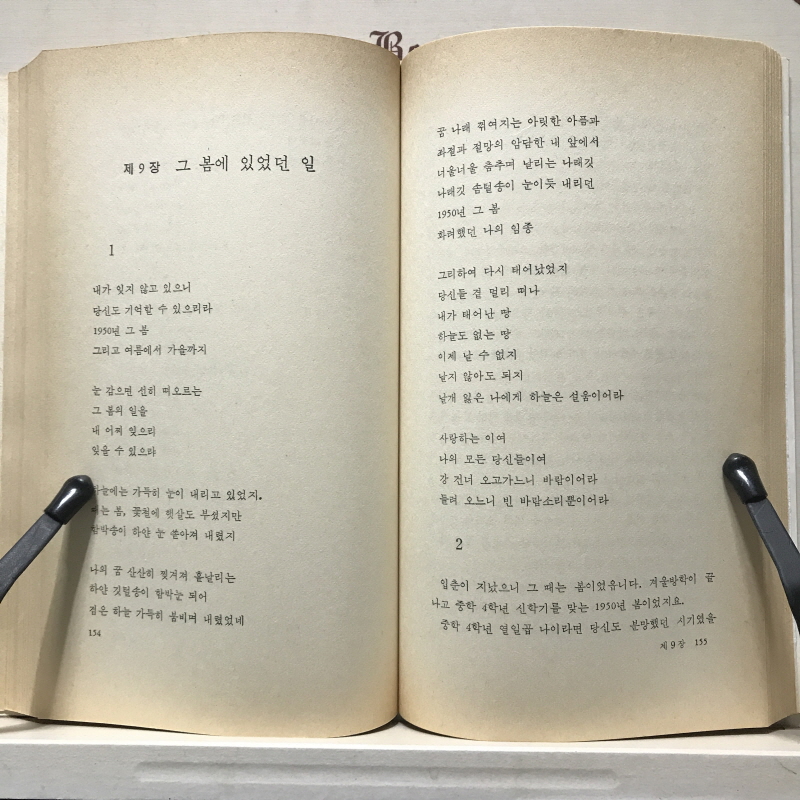 제9장 그 봄에 있었던 일
1
내가 잊지 않고 있으니
당신도 기억할 수 있으리라
1950년 그 봄
그리고 여름에서 가을까지
눈 감으면 선히 떠오르는
그 봄의 일을
내 어찌 잊으리
잊을 수 있으랴
하늘에는 가득히 눈이 내리고 있었지.
때는 봄, 꽃철에 햇살도 부셨지만
함박송이 하얀 눈 쏟아져 내렸지
나의 꿈 산산히 찢겨져 흩날리는
하얀 깃털송이 함박눈 되어
검은 하늘 가득히 붐비며 내렸었네
154
꿈 나래 꺾여지는 아릿한 아픔과
좌절과 절망의 암담한 내 앞에서
너울너울 춤추며 날리는 나래깃
나래깃 솜털송이 눈이듯 내리던
1950년 그 봄
화려했던 나의 임종
그리하여 다시 태어났었지
당신들 곁 멀리 떠나
내가 태어난 땅
하늘도 없는 땅
이제 날 수 없지
날지 않아도 되지
날개 잃은 나에게 하늘은 설움이어라
사랑하는 이여
나의 모든 당신들이여
강 건너 오고가느니 바람이어라
들려 오느니 빈 바람소리뿐이어라
2
입춘이 지났으니 그 때는 봄이었읍니다. 겨울방학이 끝
나고 중학 4학년 신학기를 맞는 1950년 봄이었지요.
중학 4학년 열일곱 나이라면 당신도 분망했던 시기였을
제9장 155